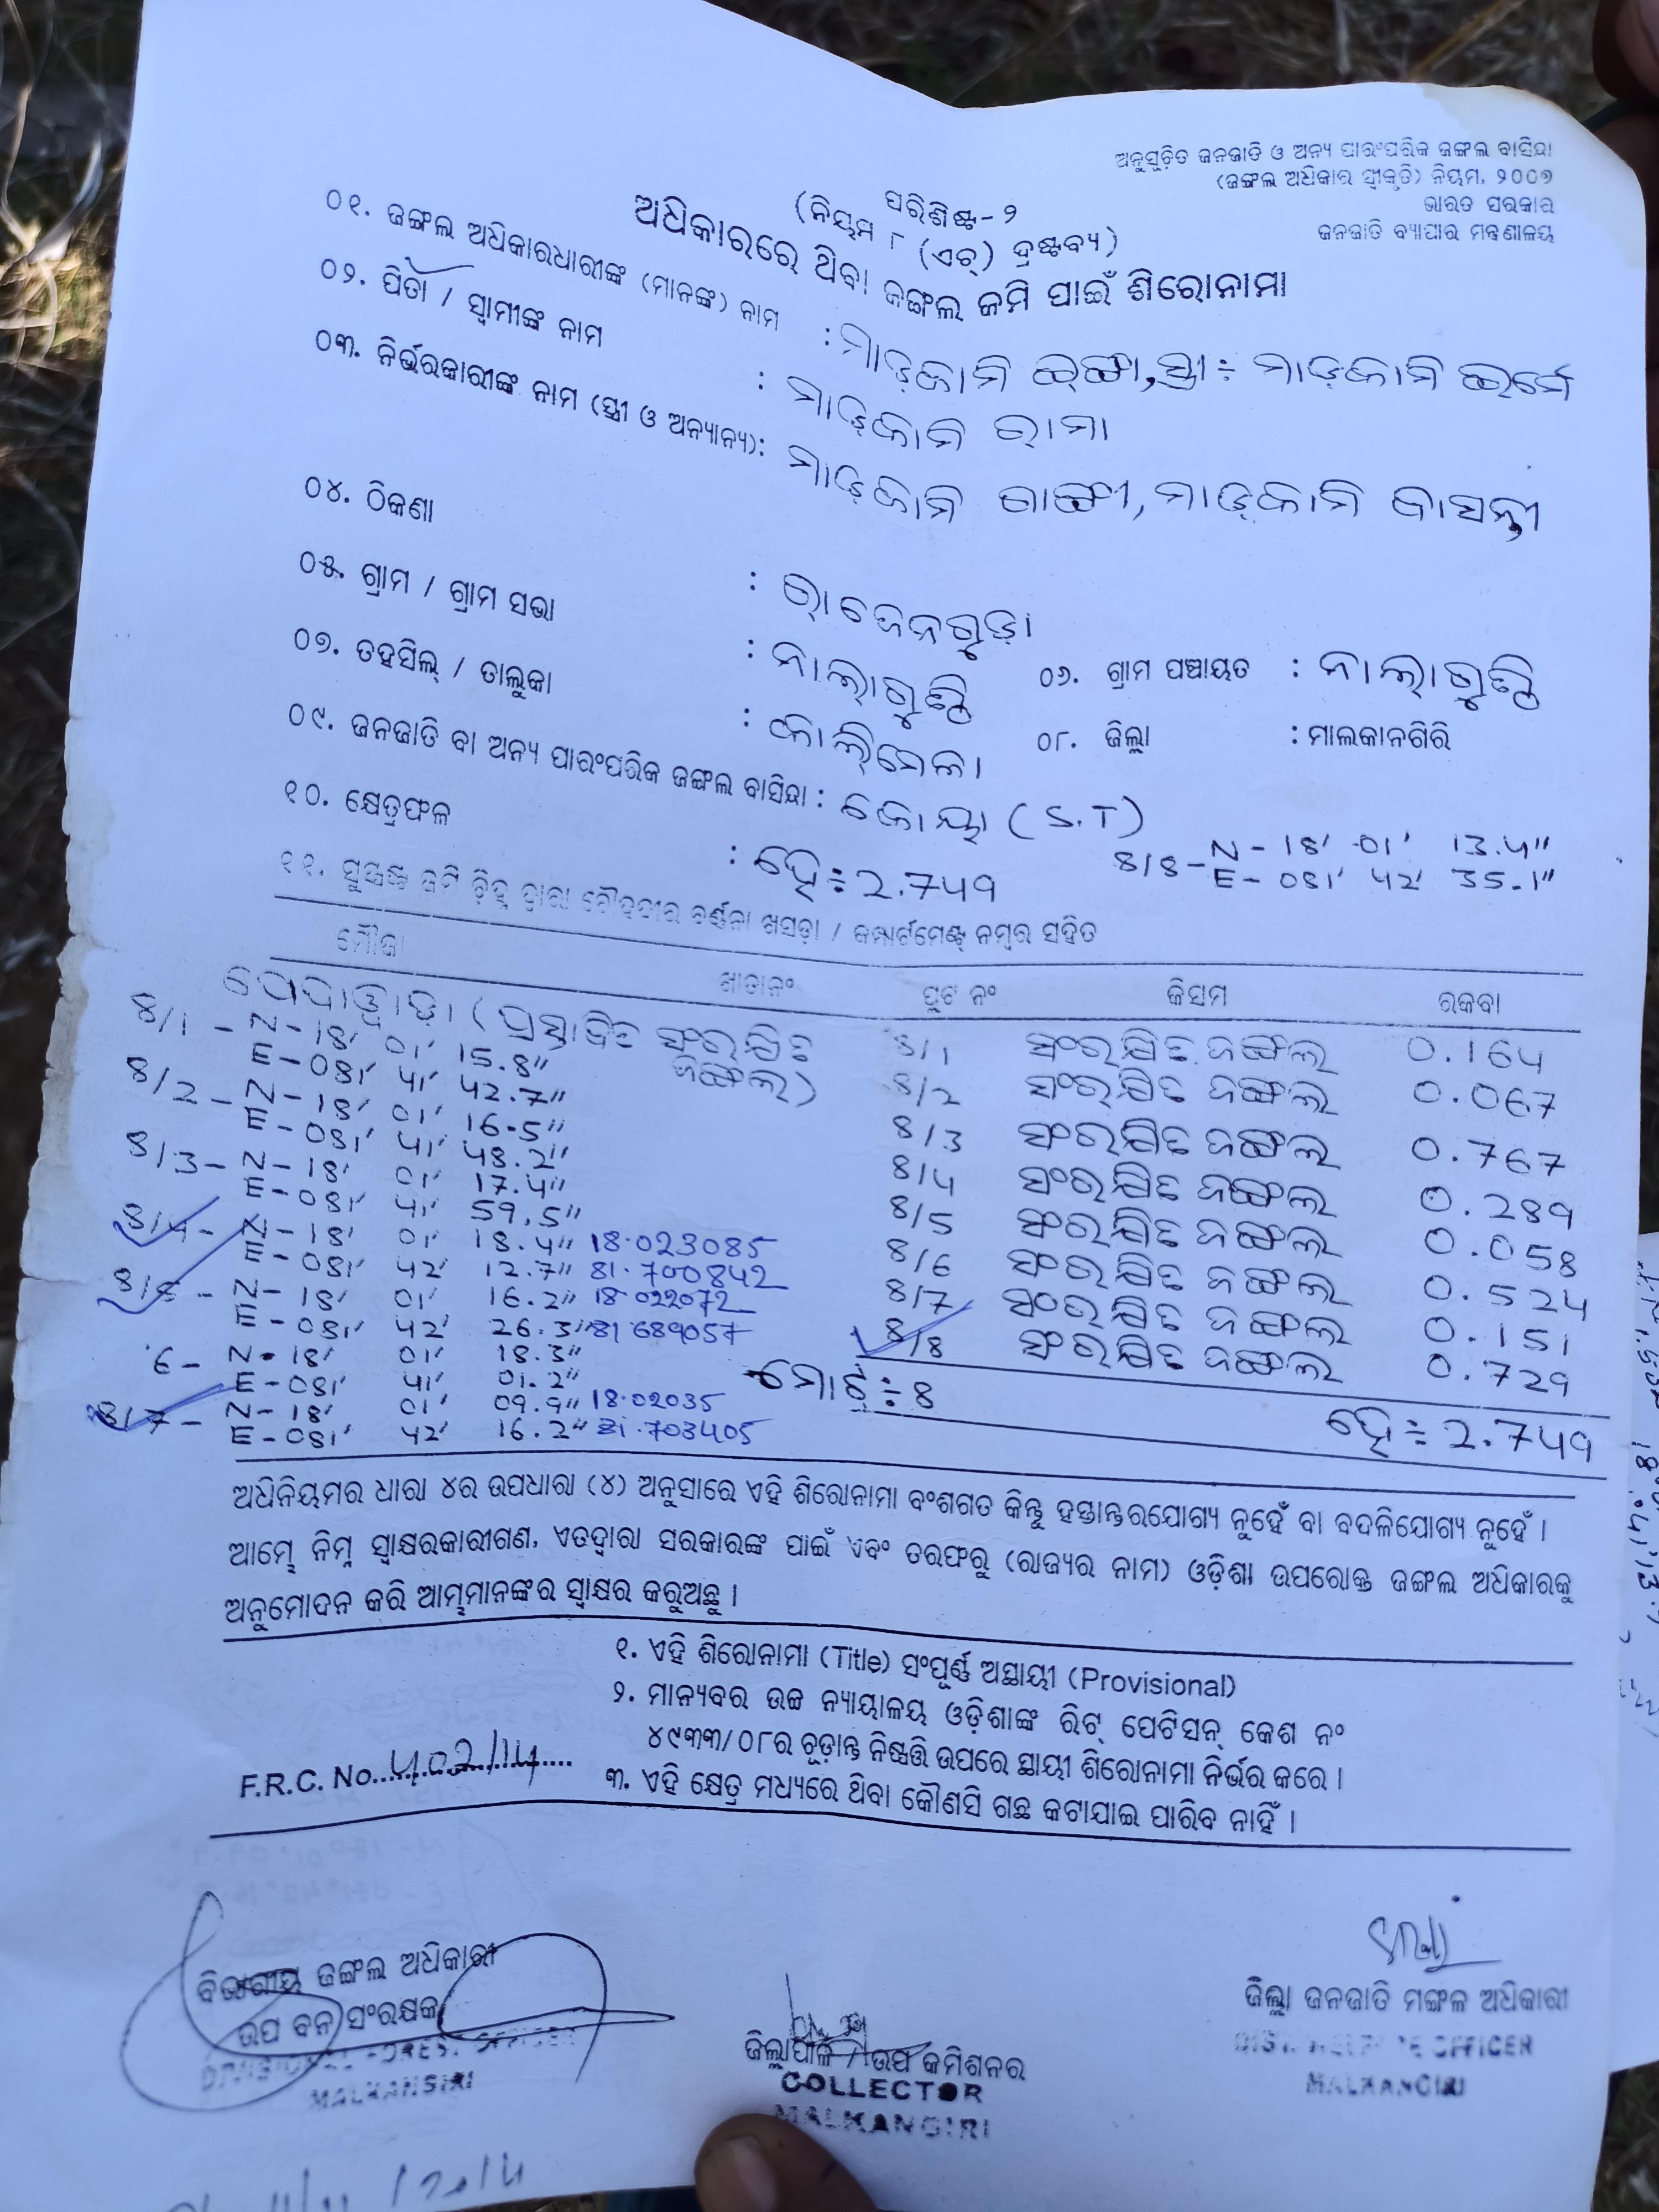 ଅନୁସୂଚିତ ଜନଜାତି ଓ ଅନ୍ୟ ପାରଂପରିକ ଜଙ୍ଗଲ ବାସିନ୍ଦା
(ଜଙ୍ଗଲ ଅଧିକାର ସ୍ୱୀକୃତି) ନିୟମ, ୨୦୦୭
ଭାରତ ସରକାର
ଜନଜାତି ବ୍ୟାପାର ମନ୍ତ୍ରଣାଳୟ
ପରିଶିଷ୍ଟ-୨
(ନିୟମ ୮ (ଏଚ୍) ଦ୍ରଷ୍ଟବ୍ୟ)
ଅଧିକାରରେ ଥିବା ଜଙ୍ଗଲ ଜମି ପାଇଁ ଶିରୋନାମା
୦୧. ଜଙ୍ଗଲ ଅଧିକାରଧାରୀଙ୍କ (ମାନଙ୍କ) ନାମ : ମାଡ଼କାମି ଭଙ୍ଗା, ସ୍ତ୍ରୀ÷ ମାଡ଼କାମି ଭର୍ମେ
୦୨. ପିତା / ସ୍ୱାମୀଙ୍କ ନାମ : ମାଡ଼କାମି ରାମା
୦୩. ନିର୍ଭରକାରୀଙ୍କ ନାମ (ସ୍ତ୍ରୀ ଓ ଅନ୍ୟାନ୍ୟ): ମାଡ଼କାମି ଗାଙ୍ଗୀ, ମାଡ଼କାମି ବାସନ୍ତୀ
୦୪. ଠିକଣା : ରାଜେନଗୁଡ଼ା
୦୫. ଗ୍ରାମ / ଗ୍ରାମ ସଭା : ନାଲାଗୁଣ୍ଠି ୦୬. ଗ୍ରାମ ପଞ୍ଚାୟତ : ନାଲାଗୁଣ୍ଠି
୦୭. ତହସିଲ୍ / ତାଲୁକା : କାଲିମେଳା ୦୮. ଜିଲ୍ଲା : ମାଲକାନଗିରି
୦୯. ଜନଜାତି ବା ଅନ୍ୟ ପାରଂପରିକ ଜଙ୍ଗଲ ବାସିନ୍ଦା : କୋୟା (S.T)
୧୦. କ୍ଷେତ୍ରଫଳ : ହେ÷ 2.749 8/8 - N - 18' 01' 13.4"
E - 081' 42' 35.1"
୧୧. ସୁସ୍ପଷ୍ଟ ଜମି ଚିହ୍ନ ଦ୍ୱାରା ଚୌହଦୀର ବର୍ଣ୍ଣନା ଖସଡ଼ା / କମ୍ପାର୍ଟମେଣ୍ଟ ନମ୍ବର ସହିତ
ମୌଜା ଖାତା ନଂ ପ୍ଲଟ ନଂ କିସମ ରକବା
(ପ୍ରସ୍ତାବିତ ସଂରକ୍ଷିତ ଜଙ୍ଗଲ) 8/1 ସଂରକ୍ଷିତ ଜଙ୍ଗଲ 0.164
8/1 - N - 18' 01' 15.8"
E - 081' 41' 42.7" 8/2 ସଂରକ୍ଷିତ ଜଙ୍ଗଲ 0.067
8/2 - N - 18' 01' 16.5"
E - 081' 41' 48.2" 8/3 ସଂରକ୍ଷିତ ଜଙ୍ଗଲ 0.767
8/3 - N - 18' 01' 17.4"
E - 081' 41' 59.5" 8/4 ସଂରକ୍ଷିତ ଜଙ୍ଗଲ 0.289
8/4 - N - 18' 01' 18.4" 18.023085 8/5 ସଂରକ୍ଷିତ ଜଙ୍ଗଲ 0.058
E - 081' 42' 12.7" 81.700842
8/5 - N - 18' 01' 16.2" 18.022072 8/6 ସଂରକ୍ଷିତ ଜଙ୍ଗଲ 0.524
E - 081' 42' 26.3" 81.689057 8/7 ସଂରକ୍ଷିତ ଜଙ୍ଗଲ 0.151
6 - N - 18' 01' 18.3" 8/8 ସଂରକ୍ଷିତ ଜଙ୍ଗଲ 0.729
E - 081' 41' 01.2"
8/7 - N - 18' 01' 09.9" 18.02035 ମୋଟ୍ ÷ 8 ହେ÷ 2.749
E - 081' 42' 16.2" 81.703405
ଅଧିନିୟମର ଧାରା ୪ର ଉପଧାରା (୪) ଅନୁସାରେ ଏହି ଶିରୋନାମା ବଂଶଗତ କିନ୍ତୁ ହସ୍ତାନ୍ତରଯୋଗ୍ୟ ନୁହେଁ ବା ବଦଳିଯୋଗ୍ୟ ନୁହେଁ ।
ଆମ୍ଭେ ନିମ୍ନ ସ୍ୱାକ୍ଷରକାରୀଗଣ, ଏତଦ୍ୱାରା ସରକାରଙ୍କ ପାଇଁ ଏବଂ ତରଫରୁ (ରାଜ୍ୟର ନାମ) ଓଡ଼ିଶା ଉପରୋକ୍ତ ଜଙ୍ଗଲ ଅଧିକାରକୁ
ଅନୁମୋଦନ କରି ଆମ୍ଭମାନଙ୍କର ସ୍ୱାକ୍ଷର କରୁଅଛୁ ।
୧. ଏହି ଶିରୋନାମା (Title) ସଂପୂର୍ଣ୍ଣ ଅସ୍ଥାୟୀ (Provisional)
୨. ମାନ୍ୟବର ଉଚ୍ଚ ନ୍ୟାୟାଳୟ ଓଡ଼ିଶାଙ୍କ ରିଟ୍ ପେଟିସନ୍ କେଶ ନଂ
୪୯୩୩/୦୮ର ଚୂଡ଼ାନ୍ତ ନିଷ୍ପତ୍ତି ଉପରେ ସ୍ଥାୟୀ ଶିରୋନାମା ନିର୍ଭର କରେ ।
F.R.C. No. 402/14 ୩. ଏହି କ୍ଷେତ୍ର ମଧ୍ୟରେ ଥିବା କୌଣସି ଗଛ କଟାଯାଇ ପାରିବ ନାହିଁ ।
ବିଭାଗୀୟ ଜଙ୍ଗଲ ଅଧିକାରୀ
ଉପ ବନ ସଂରକ୍ଷକ
DIVISIONAL FOREST OFFICER
MALKANGIRI
ଜିଲ୍ଲାପାଳ / ଉପ କମିଶନର
COLLECTOR
MALKANGIRI
ଜିଲ୍ଲା ଜନଜାତି ମଙ୍ଗଳ ଅଧିକାରୀ
DIST. WELFARE OFFICER
MALKANGIRI